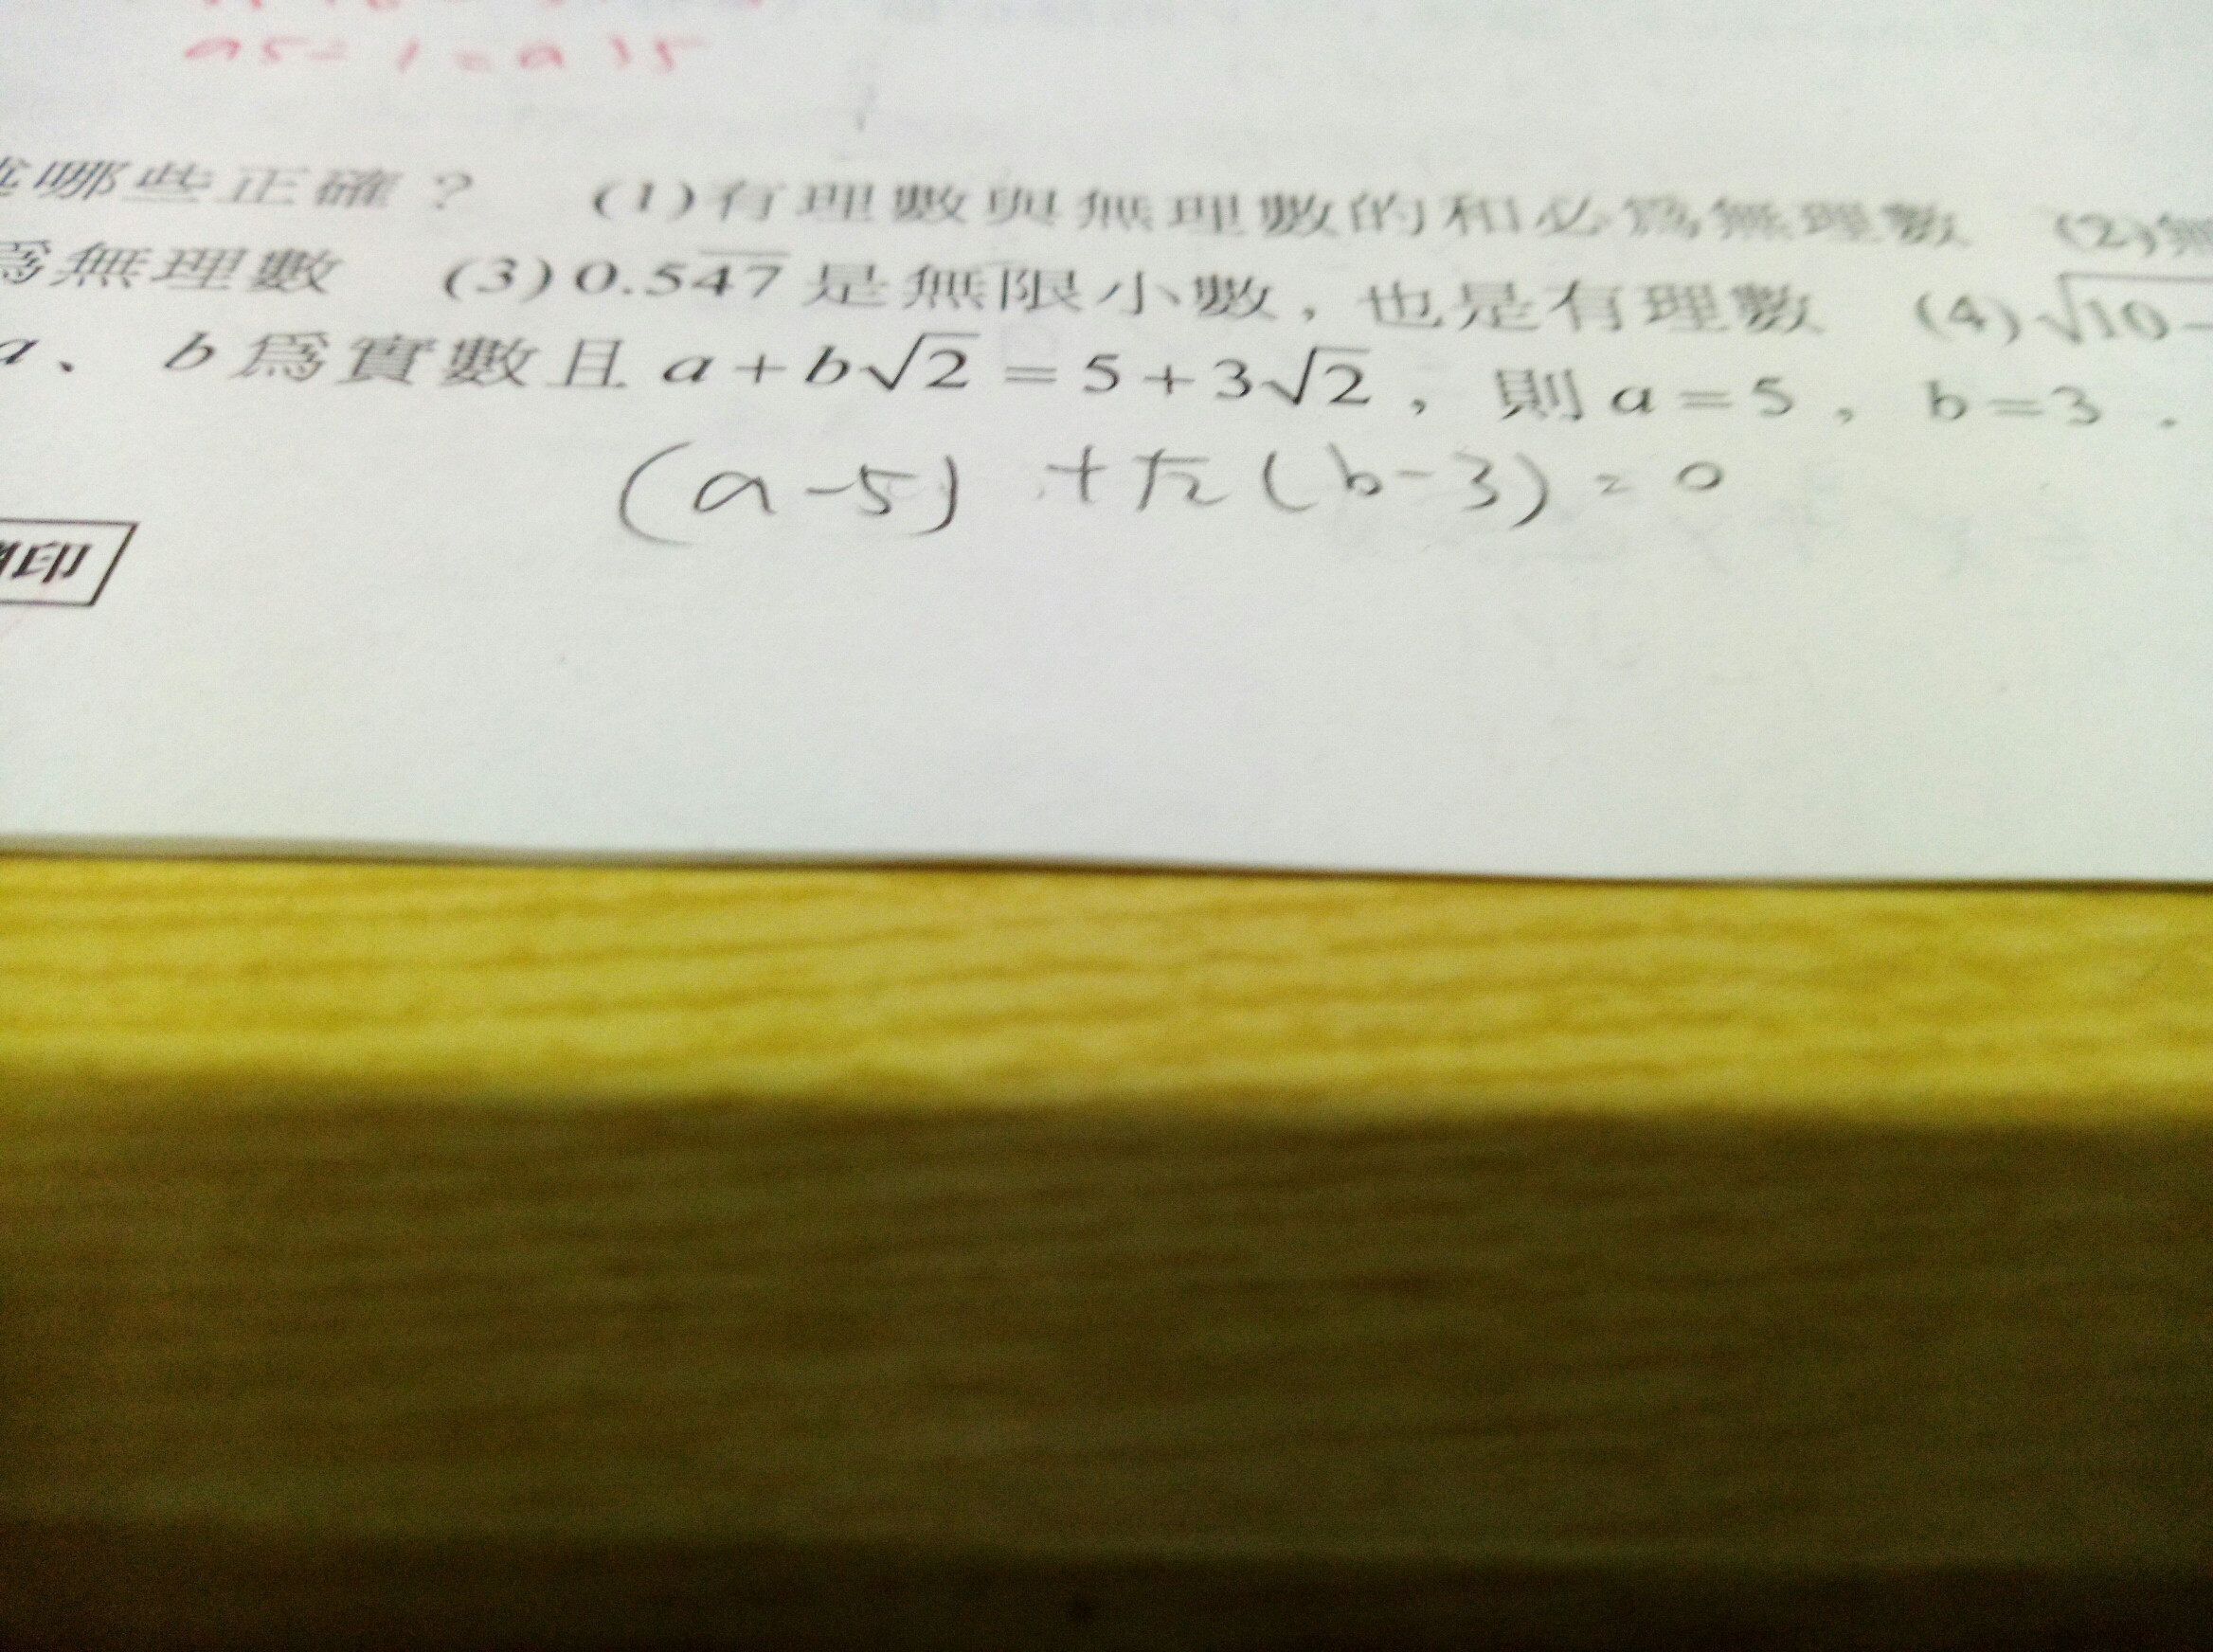 a5-1=a+5
哪些正確？ (1)有理數與無理數的和必為無理數 (2)無
為無理數 (3)0.5\overline{47}是無限小數，也是有理數 (4)√10-
a、b為實數且a+b√2=5+3√2，則a=5，b=3．
(a-5)+√2(b-3)=0
印